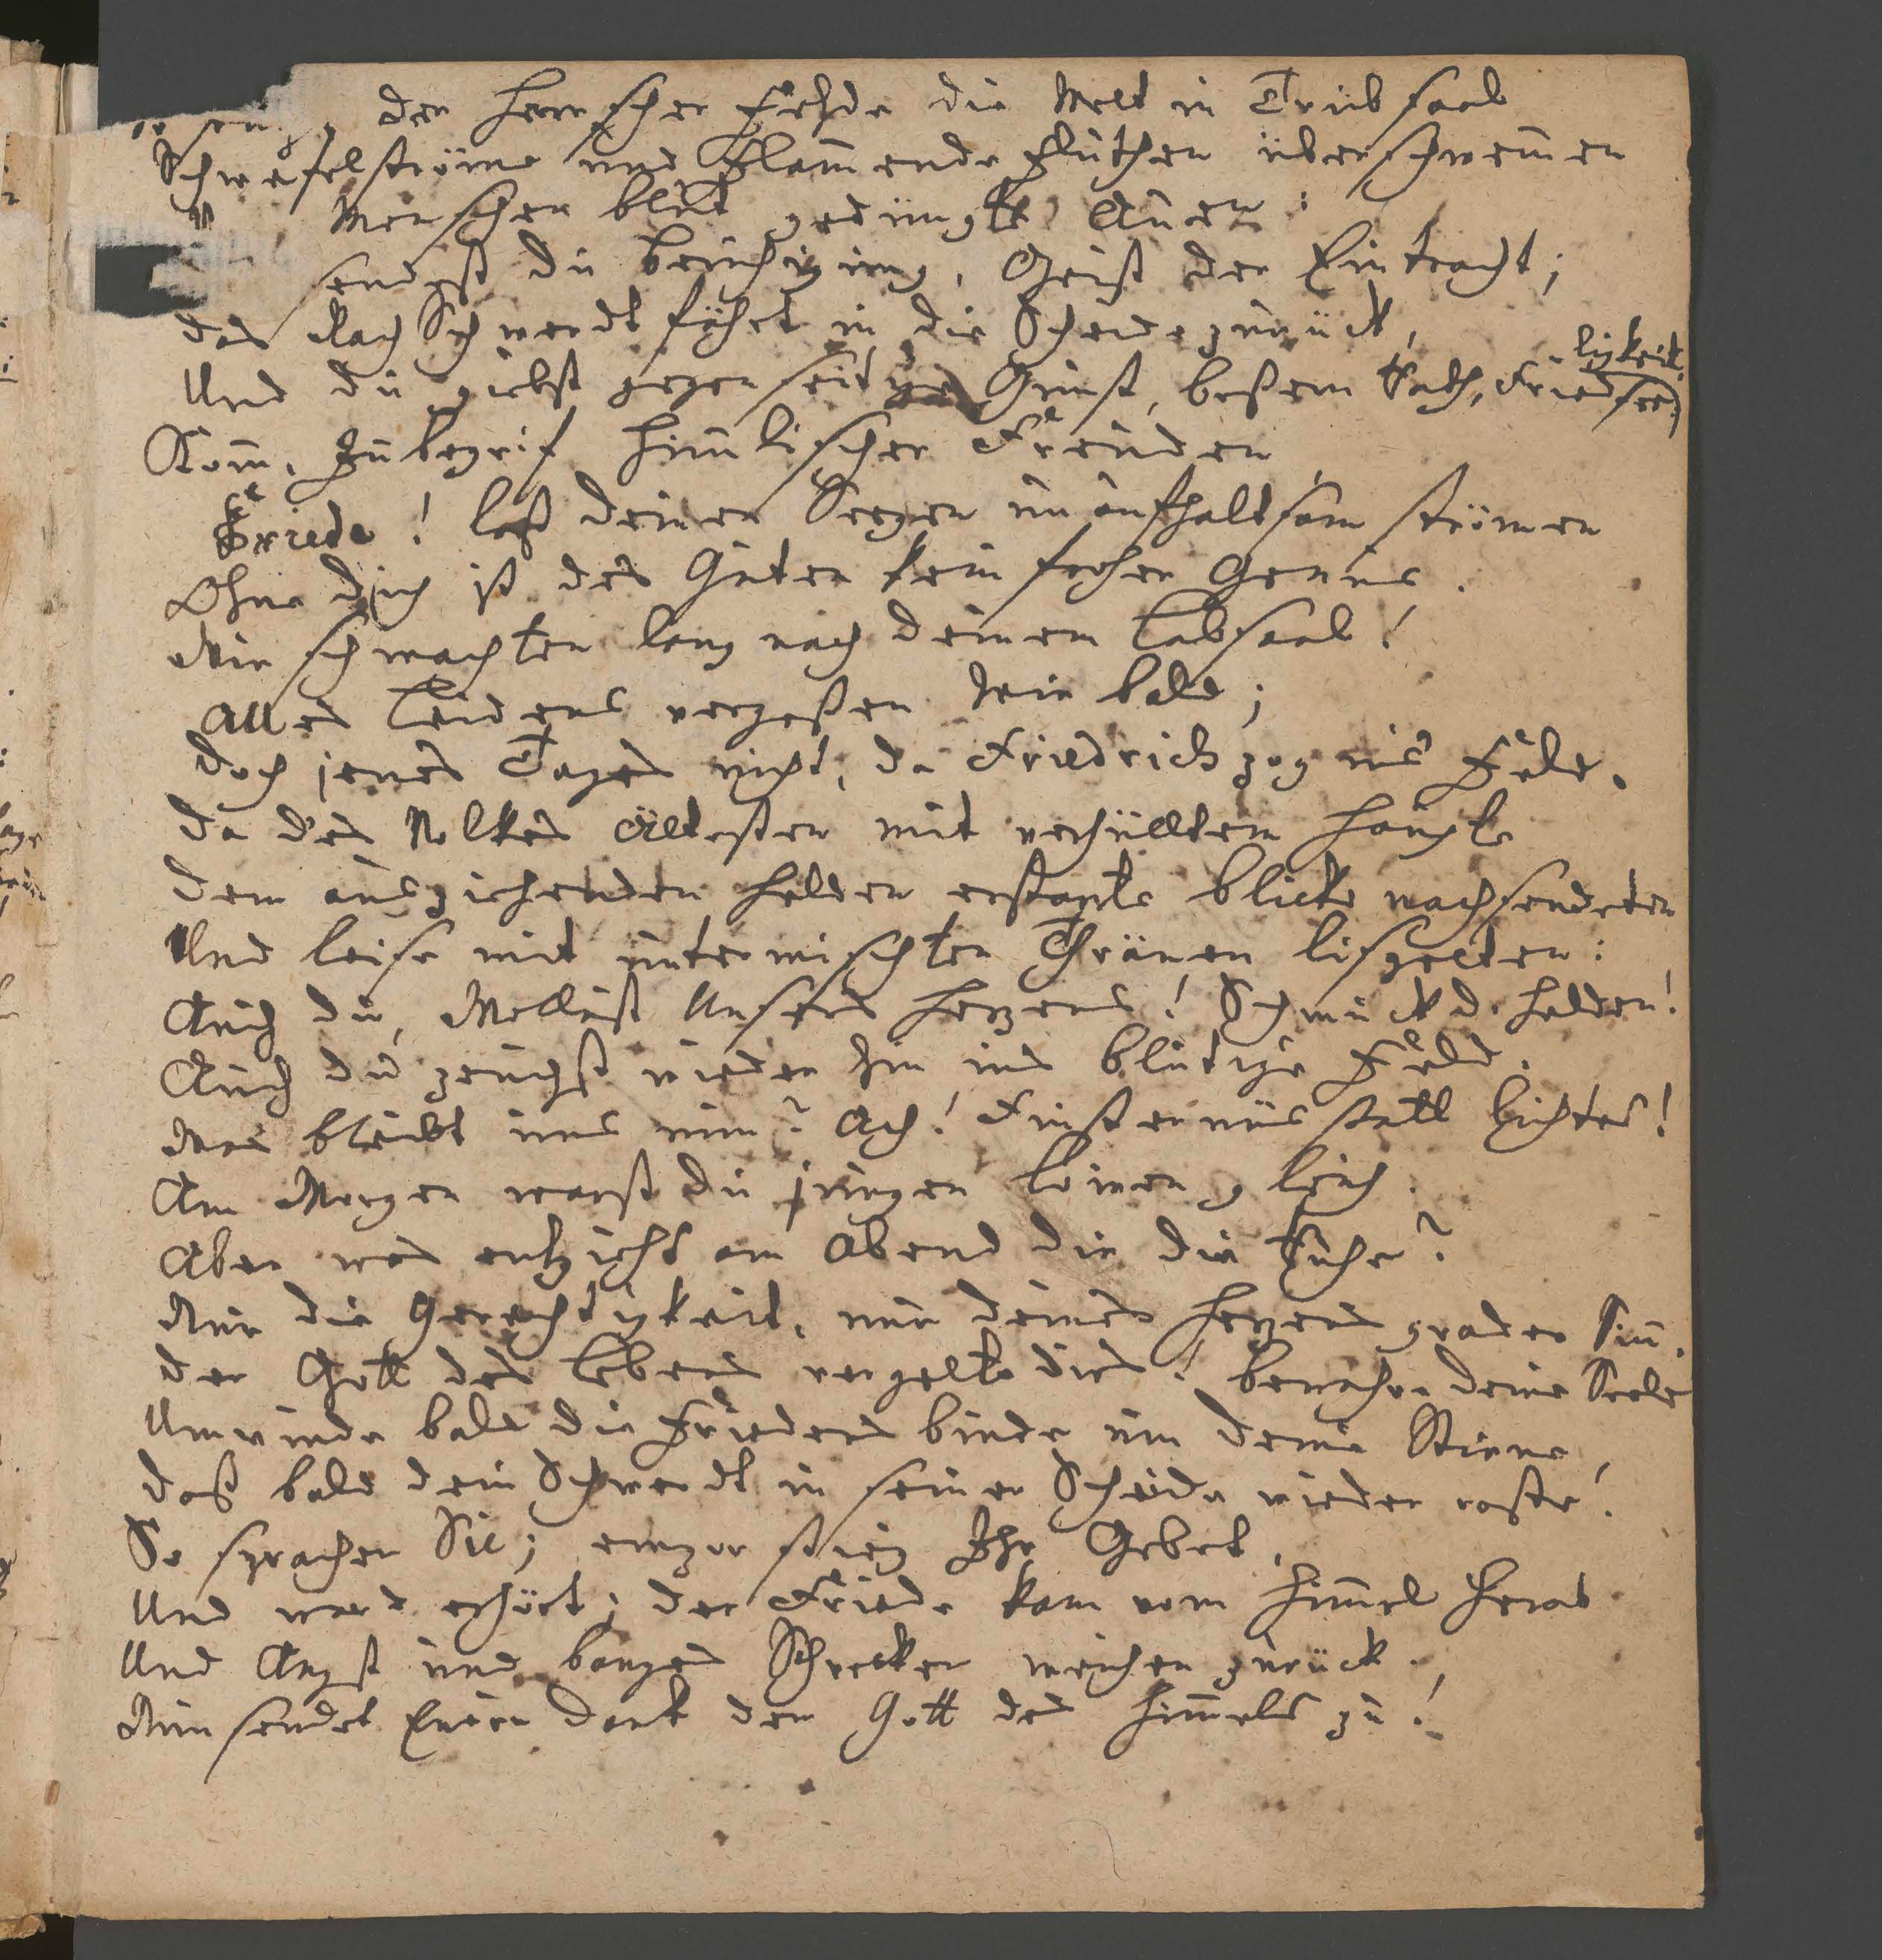 der Herrscher Fehde die Welt in Trübsaal
Schwefelströme und Flam̄ende Fluthen überschwem̄en
Menschen blut gedüngte Auen:
sendest du Beruhigung, Geist der Eintracht;
das Rach Schwerdt fährt in die Scheide zurück,
Und du giebst gegenseitge Gunst, beßern Rath, Friedsee-
ligkeit.
Kom̄, Inbegrif him̄lischer Freuden
Friede! laß deinen Seegen unaufhaltsam strömen
Ohne dich ist des Guten kein froher Genuß.
Wir schmachten lang nach deinem Labsaal!
Alles Leidens vergeßen wir bald;
Doch jenes Tages nicht, da Friedrich zog ins Feld.
da des Volkes Ältesten mit verhülltem Haupte
dem ausziehenden Helden erstarrte Blicke nachsendeten
Und leise mit untermischten Thränen lispelten:
Auch du, Wollust Unsers Herzens! Schmuck d. Helden!
Auch du zeuchst wieder hin ins blutige Feld.
Was bleibt uns nun? Ach! Finsternüs statt Lichtes!
Am Morgen warst du jungen Löwen gleich.
Aber was entzieht am Abend dir die Ruhe?
Nur die Gerechtigkeit, nur deines Herzens grader Sin̄.
der Gott des Lebens vergelte dirs! bewahre deine Seele
Umwinde bald die Friedens binde um deine Stirne,
daß bald dein Schwerdt in seiner Scheide wieder roste!
So sprachen Sie; empor stieg Ihr Gebet,
Und ward erhört; der Friede kam vom Him̄el herab
Und Angst und banges Schrecken weichen zurück.
Nun sendet Euren Dank den Gott des Him̄els zu!